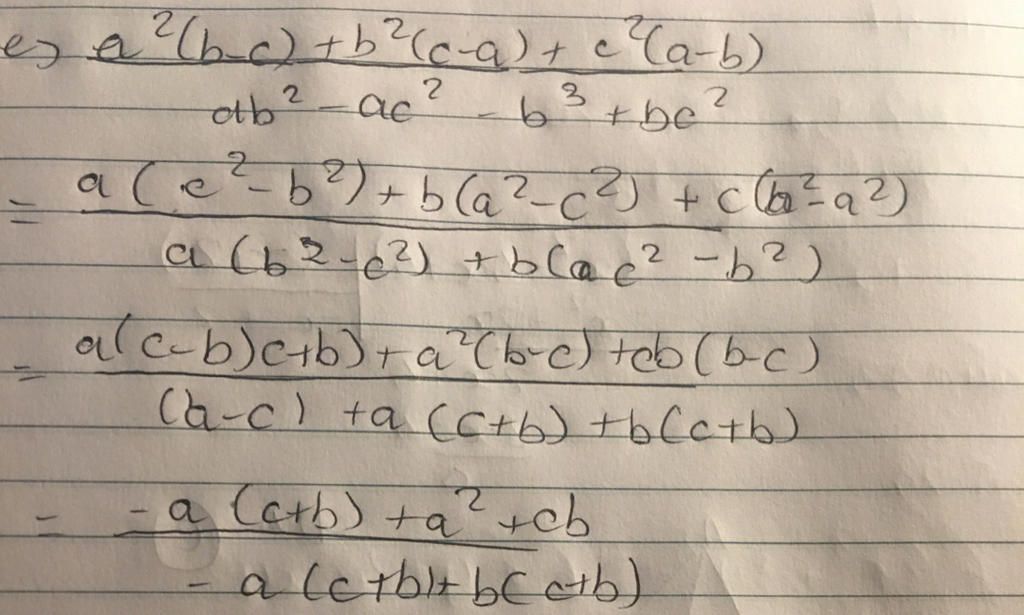 e) a²(b-c) + b²(c-a) + c²(a-b)
ab² - ac² - b³ + bc²
= a(c²-b²) + b(a²-c²) + c(b²-a²)
a(b²-c²) + b(ac²-b²)
= a(c-b)c+b) + a²(b-c) + cb(b-c)
(b-c) + a(c+b) + b(c+b)
= -a(c+b) + a² + cb
- a(c+b)+ b(c+b)